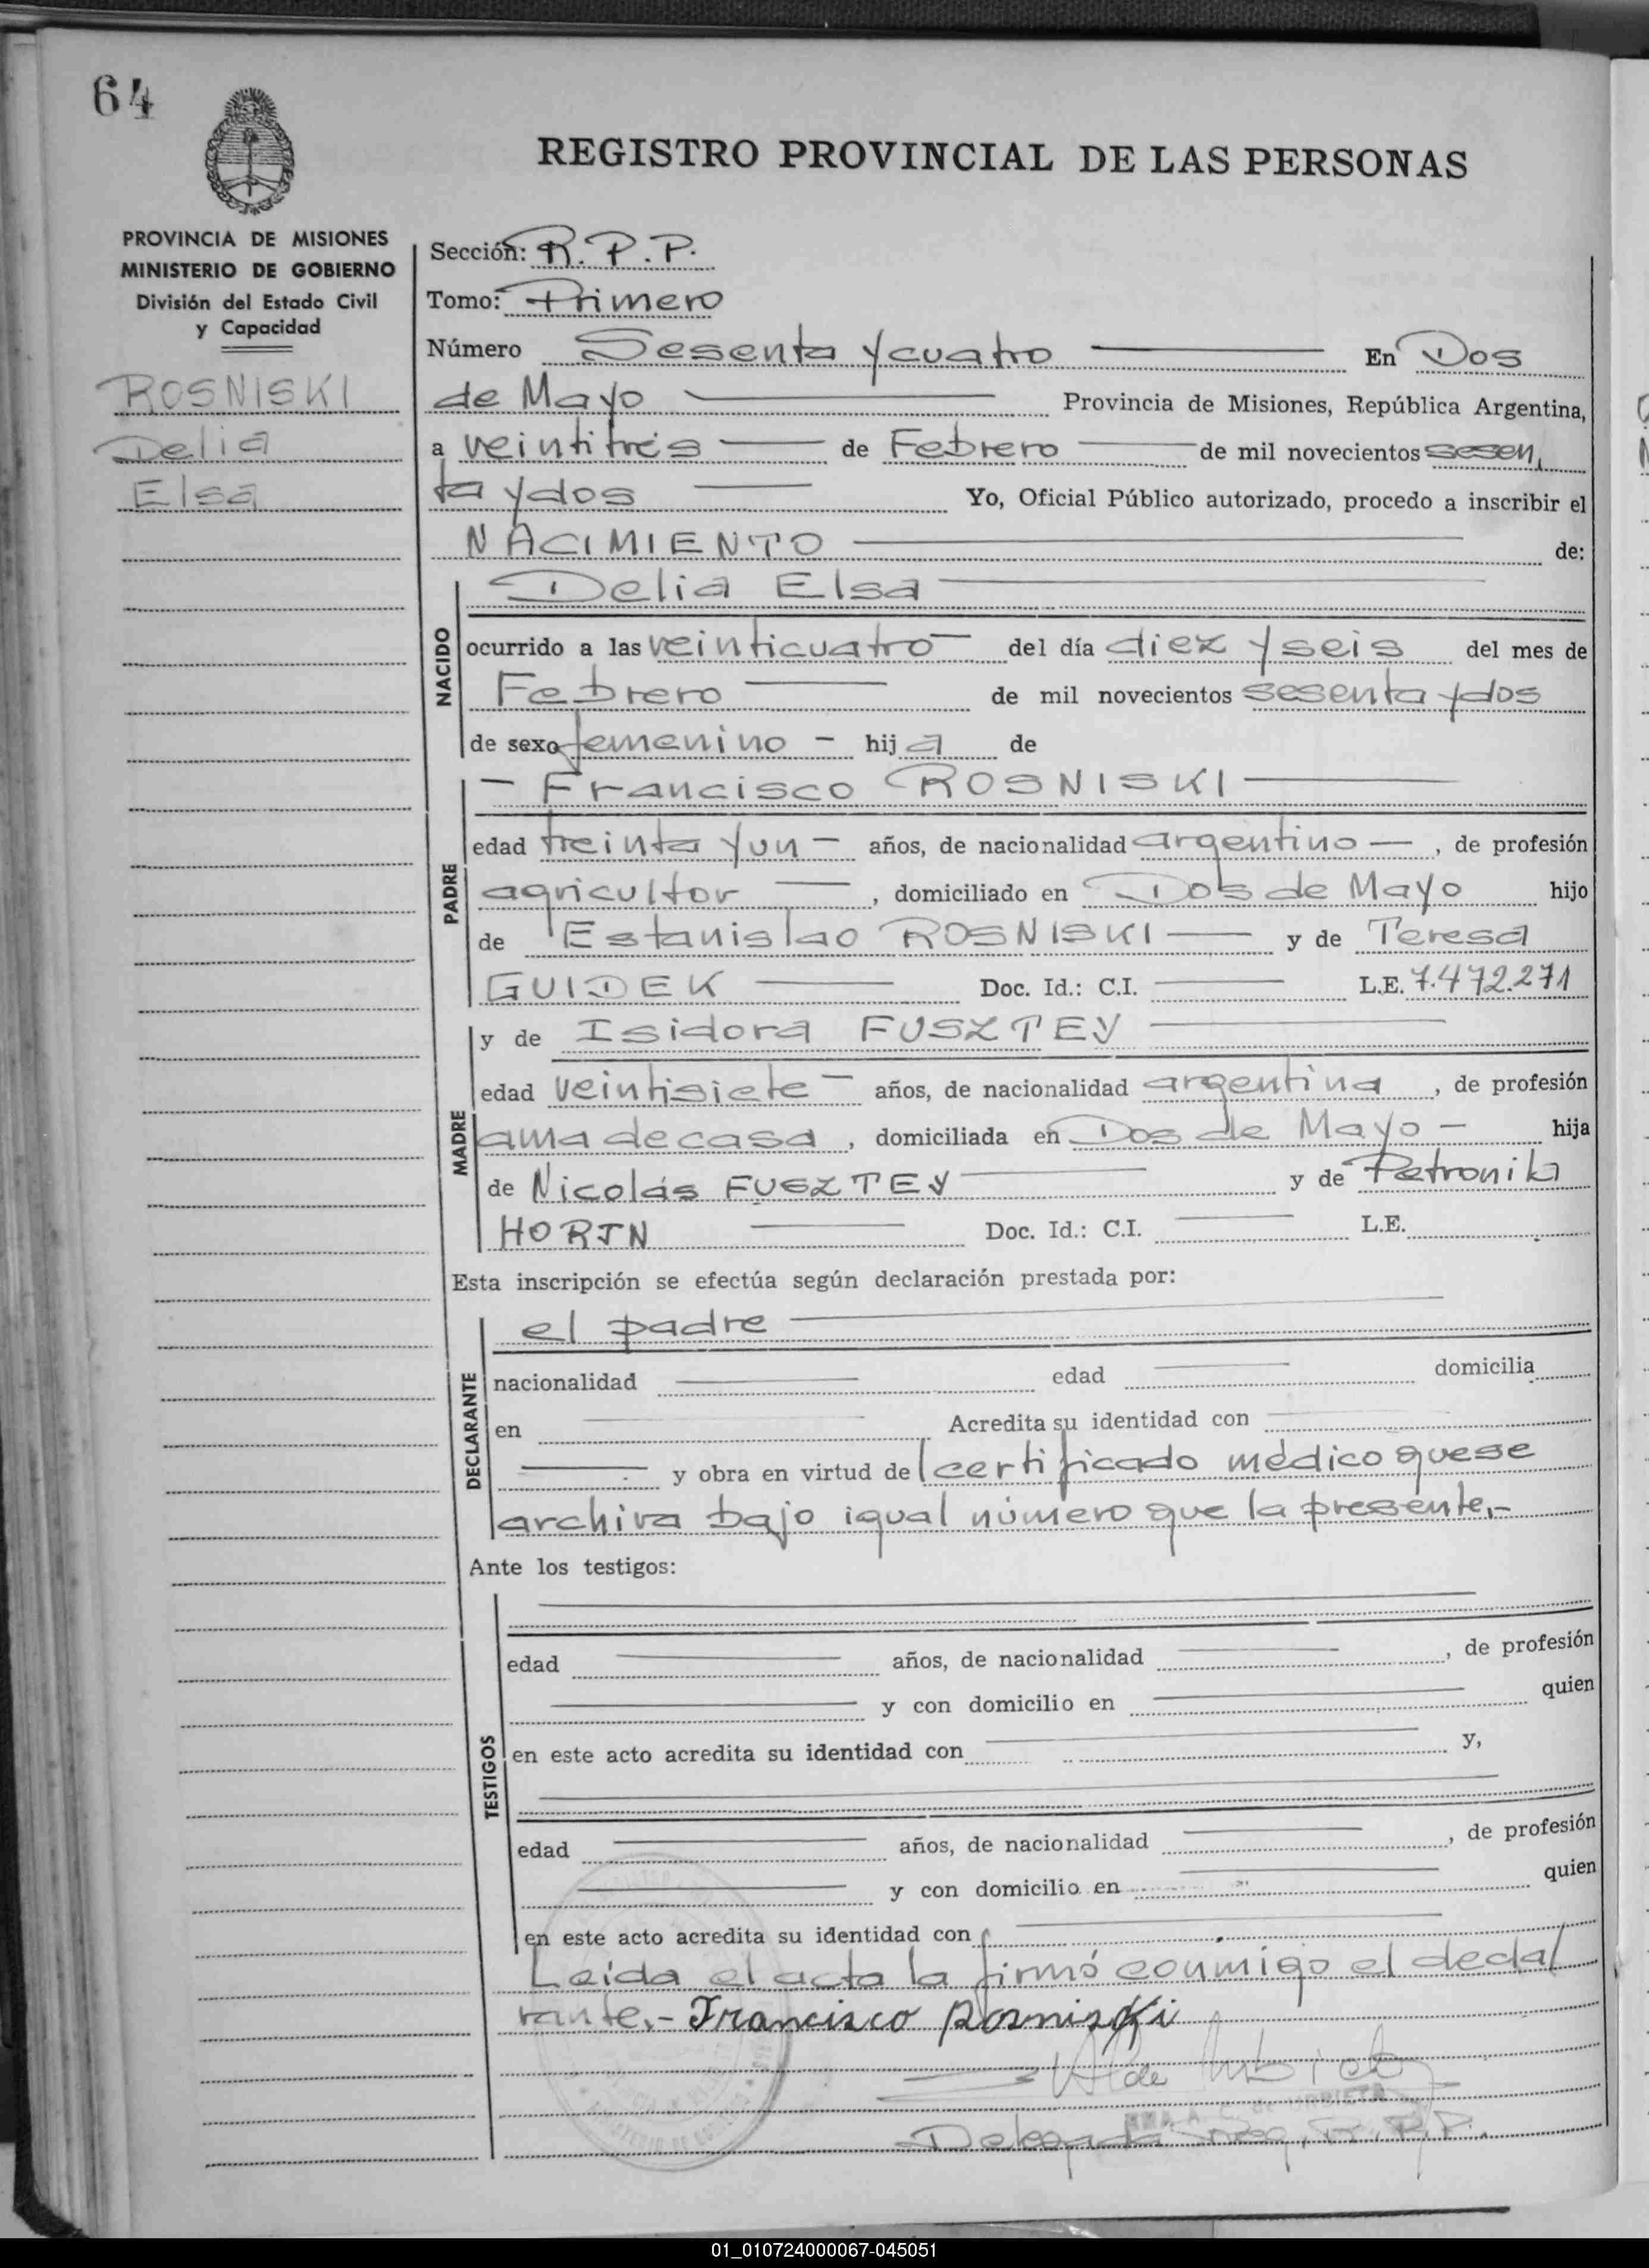 64
REGISTRO PROVINCIAL DE LAS PERSONAS
PROVINCIA DE MISIONES
MINISTERIO DE GOBIERNO
División del Estado Civil
y Capacidad
ROSNISKI
Delia
Elsa
Sección: R. P. P.
Tomo: Primero
Número Sesenta y cuatro En Dos
de Mayo Provincia de Misiones, República Argentina,
a veintitrés de Febrero de mil novecientos sesen
ta y dos Yo, Oficial Público autorizado, procedo a inscribir el
NACIMIENTO de:
NACIDO
Delia Elsa
ocurrido a las veinticuatro del día diez y seis del mes de
Febrero de mil novecientos sesenta y dos
de sexo femenino - hija de
PADRE
- Francisco ROSNISKI
edad treinta y un - años, de nacionalidad argentino -, de profesión
agricultor, domiciliado en Dos de Mayo hijo
de Estanislao ROSNISKI y de Teresa
GUIDEK Doc. Id.: C.I. L.E. 7.472.271
MADRE
y de Isidora FUSZTEY
edad veintisiete - años, de nacionalidad argentina, de profesión
ama de casa, domiciliada en Dos de Mayo - hija
de Nicolás FUSZTEY y de Petronila
HORIN Doc. Id.: C.I. L.E.
Esta inscripción se efectúa según declaración prestada por:
DECLARANTE
el padre
nacionalidad edad domicilia
en Acredita su identidad con
y obra en virtud del certificado médico que se
archiva bajo igual número que la presente.-
Ante los testigos:
TESTIGOS
edad años, de nacionalidad , de profesión
y con domicilio en quien
en este acto acredita su identidad con y,
edad años, de nacionalidad , de profesión
y con domicilio en quien
en este acto acredita su identidad con
Leída el acta la firmó conmigo el decla
rante.- Francisco Rosniski
A. C. de URBIETA
01_010724000067-045051